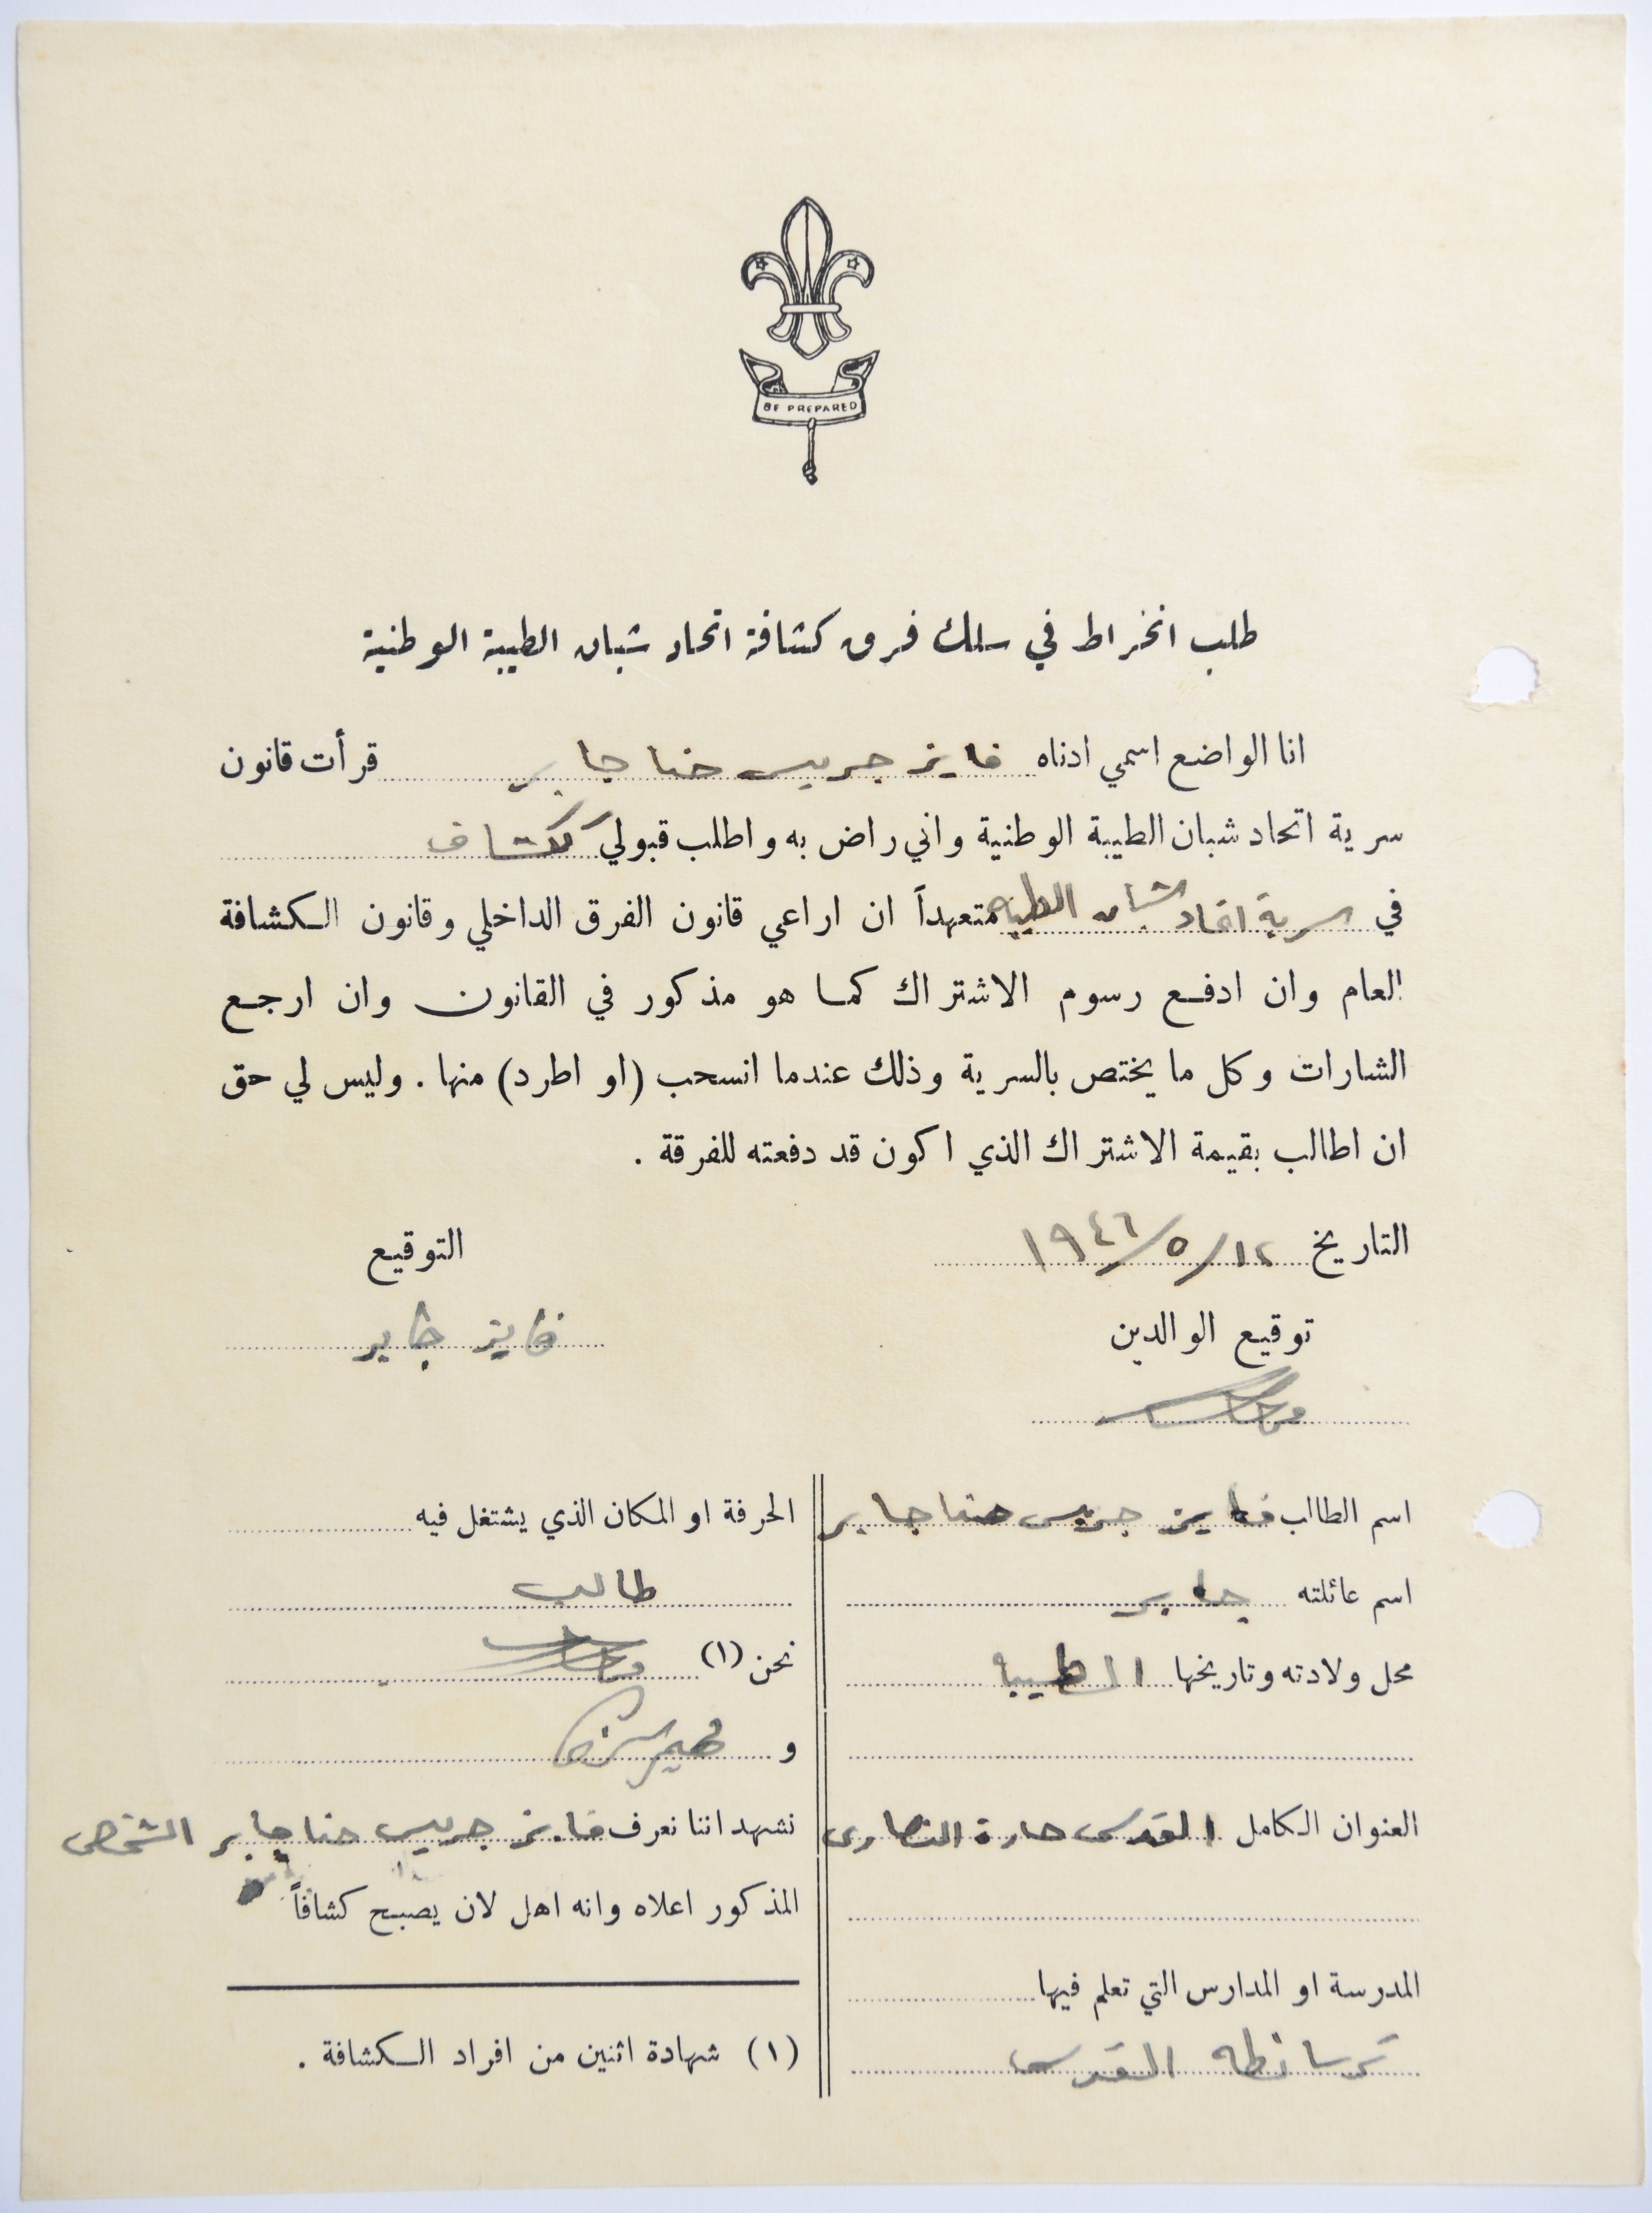 BE PREPARED
طلب انخراط في سلك فرق كشافة اتحاد شبان الطيبة الوطنية
انا الواضع اسمي ادناه فايز جريس حنا جابر قرأت قانون
سرية اتحاد شبان الطيبة الوطنية واني راض به واطلب قبولي ككشاف
في سرية اتحاد شبان الطيبه متعهداً ان اراعي قانون الفرق الداخلي وقانون الكشافة
العام وان ادفع رسوم الاشتراك كما هو مذكور في القانون وان ارجع
الشارات وكل ما يختص بالسرية وذلك عندما انسحب (او اطرد) منها . وليس لي حق
ان اطالب بقيمة الاشتراك الذي اكون قد دفعته للفرقة .
التاريخ ١٢/٥/١٩٤٦
التوقيع
فايز جابر
توقيع الوالدين
اسم الطالب فايز جريس حنا جابر
اسم عائلته جابر
محل ولادته وتاريخها الطيبا
العنوان الكامل القدس حارة النصارى
المدرسة او المدارس التي تعلم فيها
تراسانطه القدس
الحرفة او المكان الذي يشتغل فيه
طالب
نحن (١)
و
نشهد اننا نعرف فايز جريس حنا جابر الشخص
المذكور اعلاه وانه اهل لان يصبح كشافاً
(١) شهادة اثنين من افراد الكشافة .